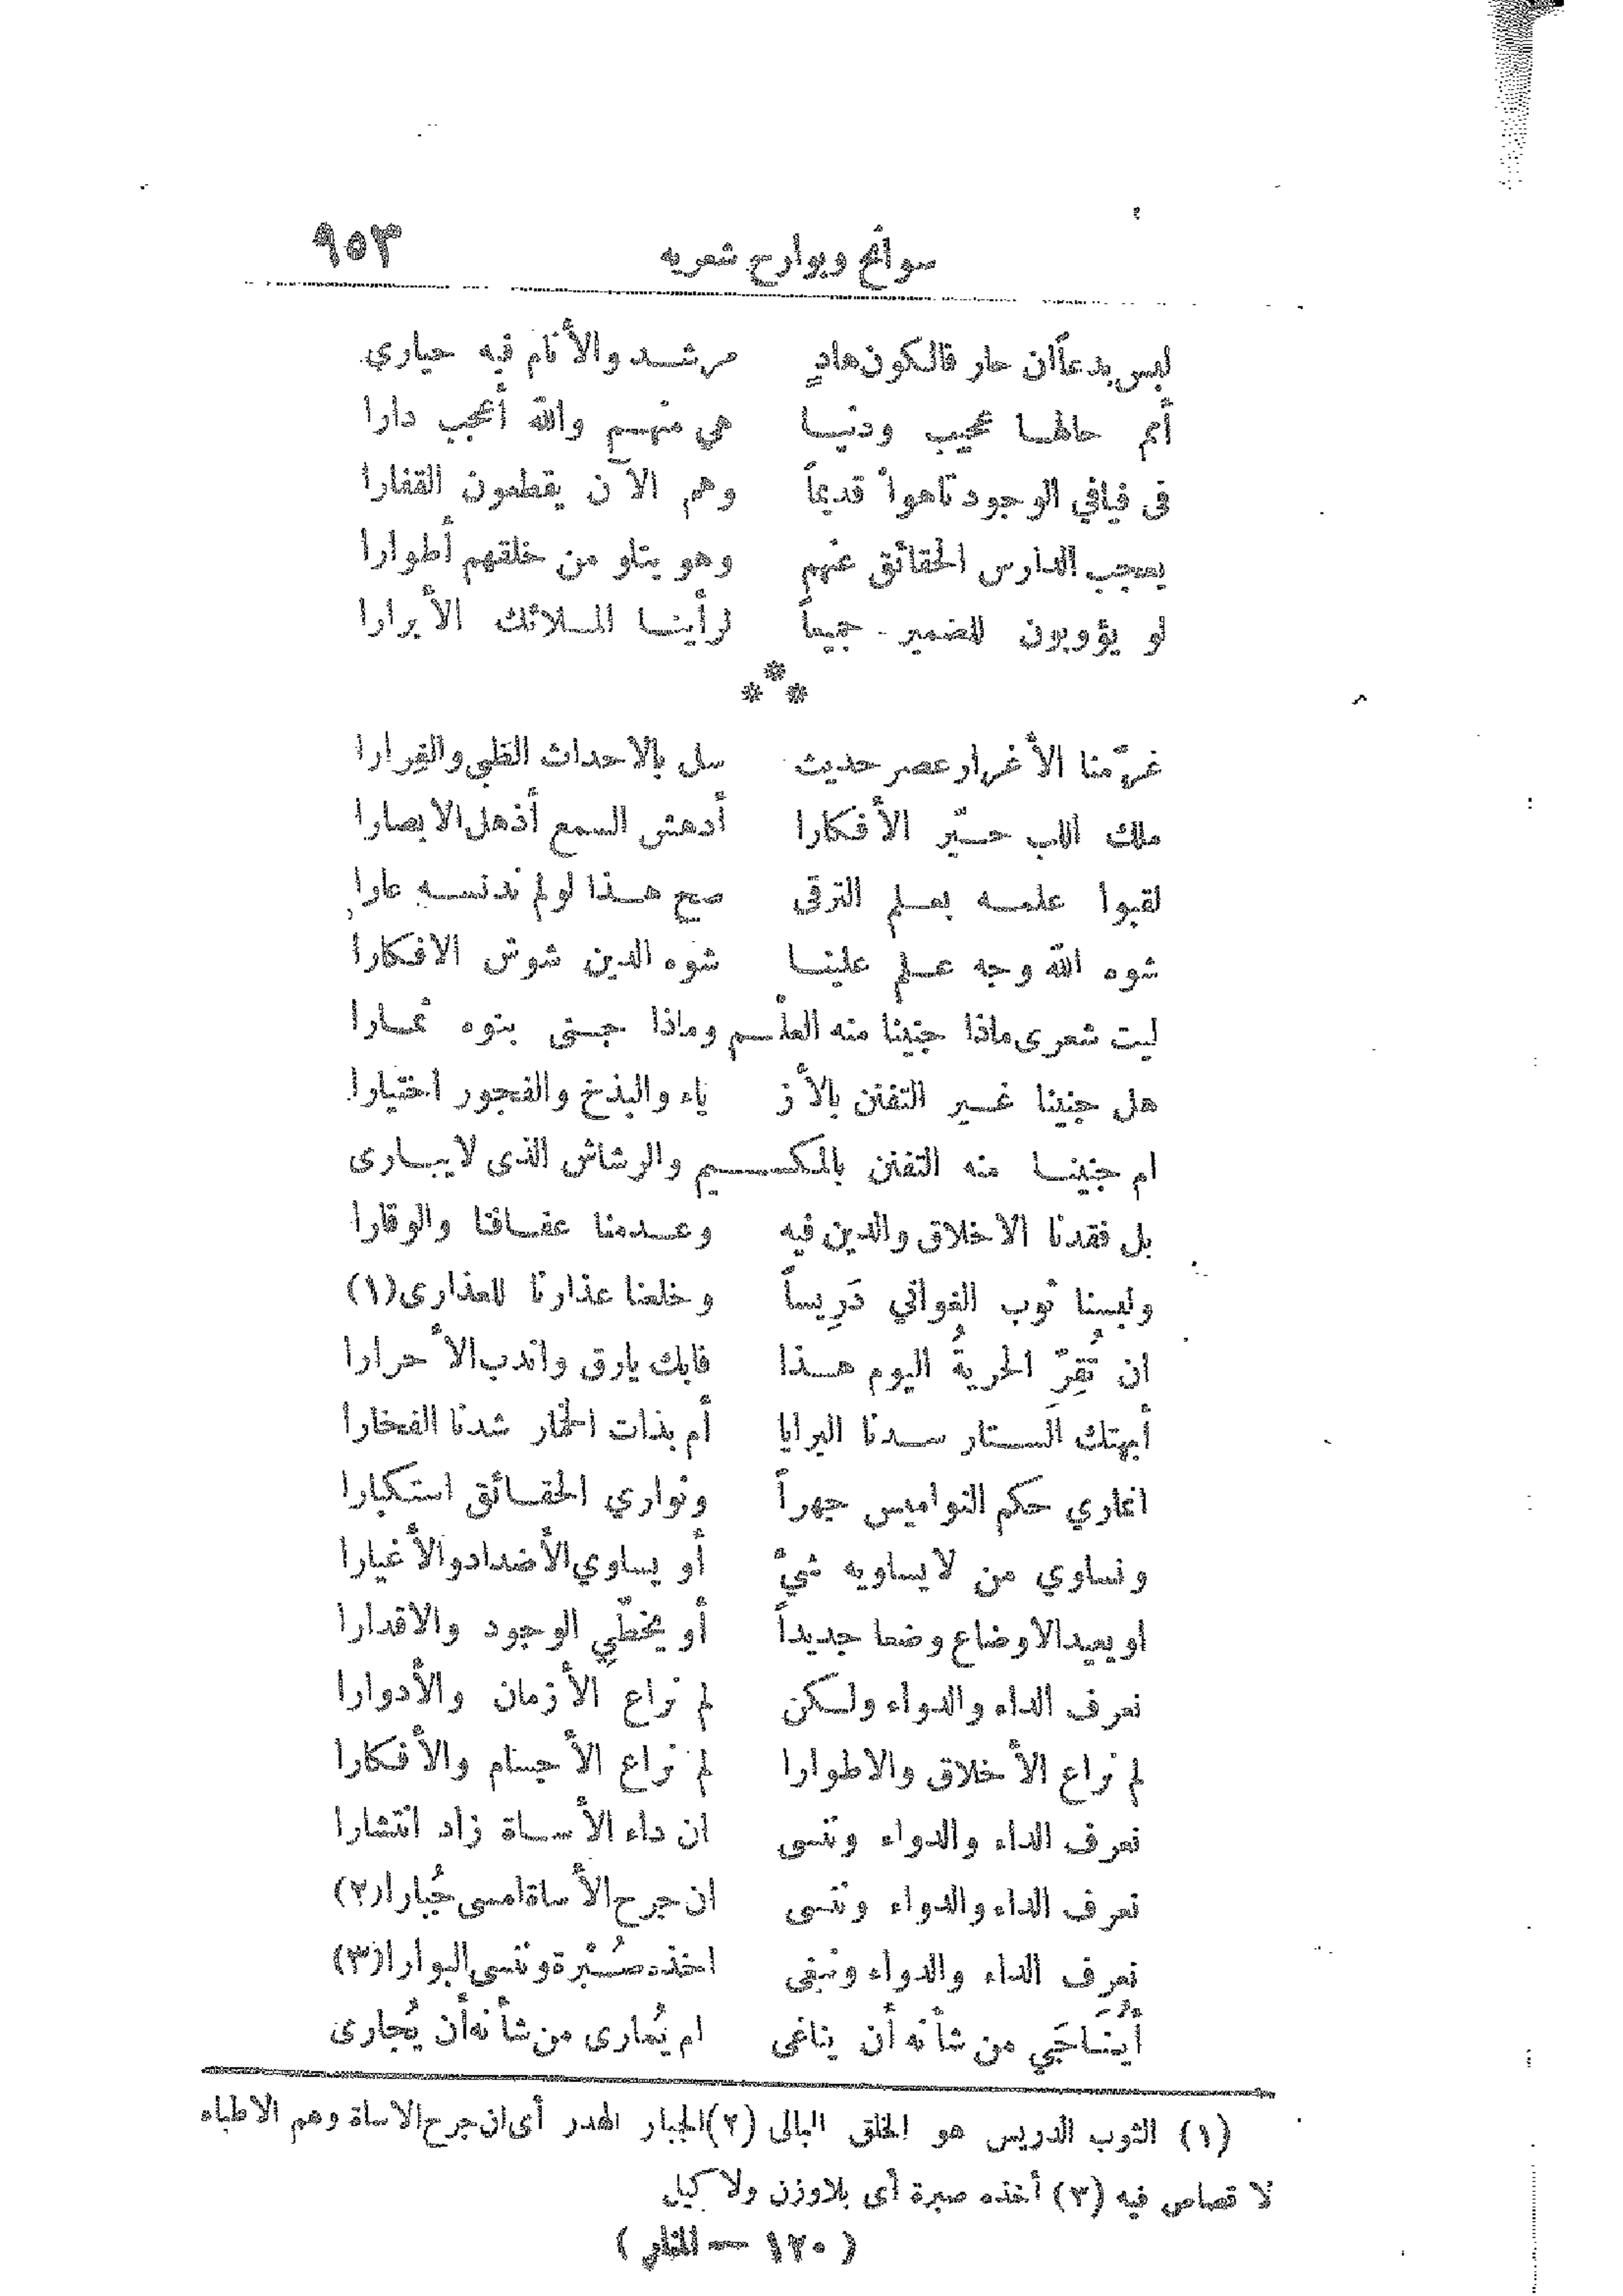 سوانح وبوارح شعريه ٩٥٣
ليس بدعاً ان حار فالكون هادٍ مرشد والأنام فيه حيارى
أمم حالها عجيب ودنيا هي منهم والله أعجب دارا
فى فيافي الوجود تاهوا قديماً وهم الآن يقطعون القفارا
يعجب الدارس الحقائق عنهم وهو يتلو من خلقهم أطوارا
لو يؤوبون للضمير جميعاً لرأينا الملائك الأبرارا
***
غرّ منا الأغرار عصر حديث سل بالاحداث الظبي والغرارا
ملك اللب حيّر الأفكارا أدهش السمع أذهل الابصارا
لقبوا علمه بعلم الترقى صح هذا لو لم ندنسه عارا
شوه الله وجه علم علينا شوه الدين شوش الافكارا
ليت شعرى ماذا جنينا منه العلم وماذا جنى بنوه ثمارا
هل جنينا غير التفنن بالأز ياء والبذخ والفجور اختيارا
ام جنينا منه التفنن بالمكسيم والرشاش الذى لايبارى
بل فقدنا الاخلاق والدين فيه وعدمنا عفافنا والوقارا
ولبسنا ثوب الغواني دَرِيساً وخلعنا عذارنا للعذارى (١)
ان تُقِرّ الحريةُ اليوم هذا فابك يارق واندب الأحرارا
أبهتك الستار سدنا البرايا أم بذات الخمار شدنا الفخارا
انماري حكم النواميس جهراً ونواري الحقائق استكبارا
ونساوي من لايساويه شيءٌ أو يساوي الأضداد والأغيارا
او يعيد الاوضاع وضعا جديداً أو يخطّي الوجود والاقدارا
نعرف الداء والدواء ولكن لم نراع الأزمان والأدوارا
لم نراع الأخلاق والاطوارا لم نراع الأجسام والأفكارا
نعرف الداء والدواء وننسى ان داء الأساة زاد انتشارا
نعرف الداء والدواء وننسى ان جرح الأساة امسى جُبارا (٢)
نعرف الداء والدواء ونبغى اخذه صُبْرة وننسى البوارا (٣)
أيُنَاجَي من شأنه أن يناغى ام يُمارى من شأنه أن يُجارى
(١) الثوب الدريس هو الخلق البالى (٢) الجبار الهدر أى ان جرح الاساة وهم الاطباء
لا قصاص فيه (٣) أخذه صبرة أى بلا وزن ولا كيل
( ١٢٠ — المنار )